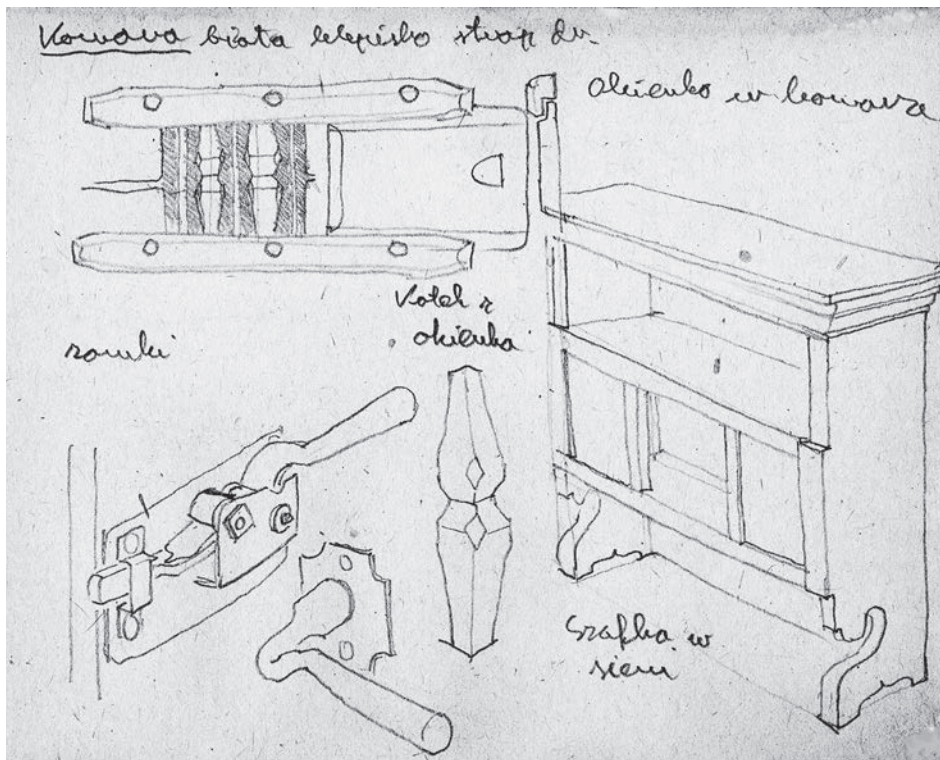 Komora biała klepisko strop dr.
okienko w komorze
Kołek z
okienka
zamki
Szafka w
sieni